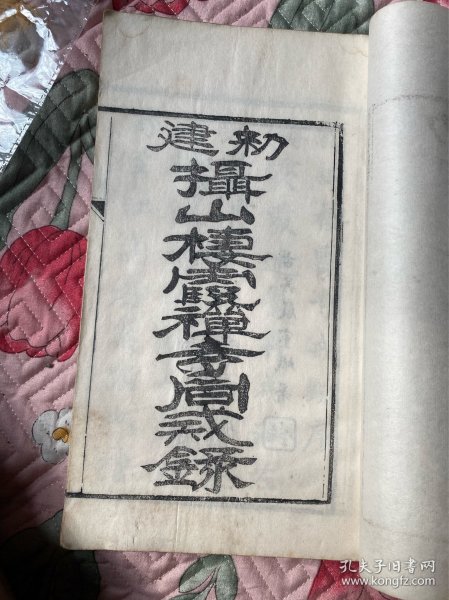 勅建
攝山棲霞禪寺同戒錄
孔夫子旧书网
www.kongfz.com